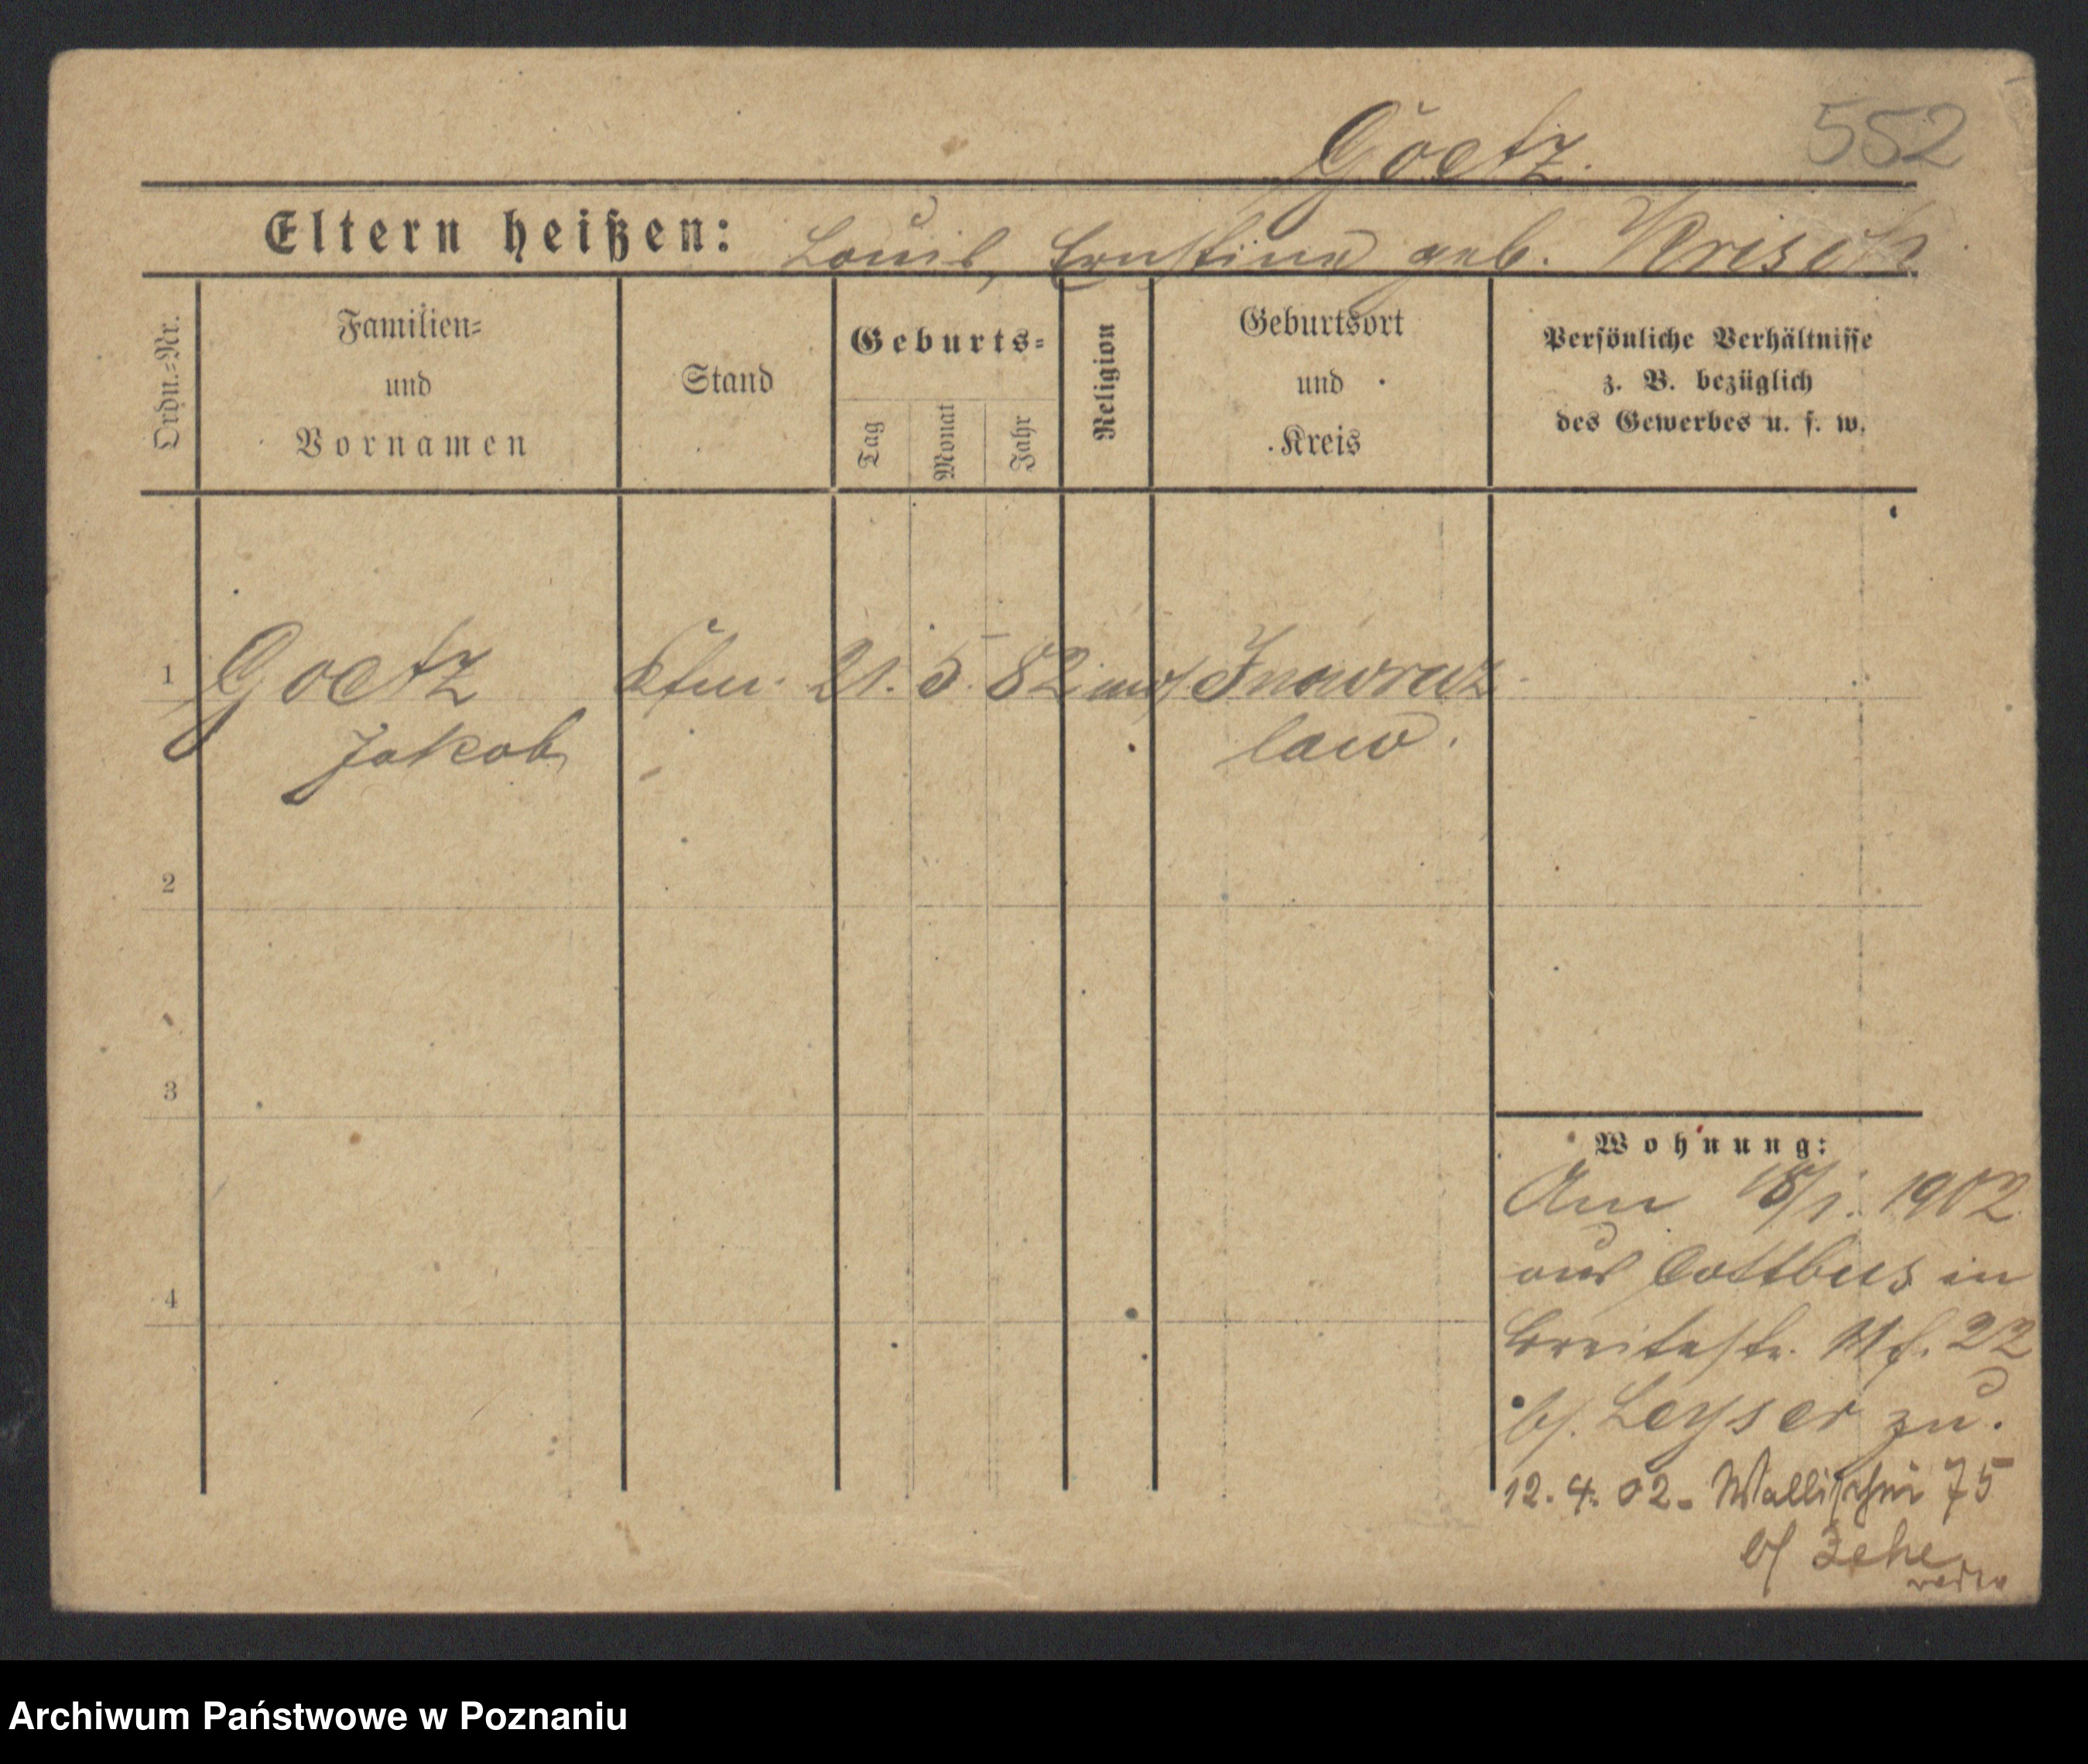 Goetz.
552
Eltern heißen: Louis, Ernstine geb. Krisch
Ordn.-Nr.
Familien-
und
Vornamen
Stand
Geburts-
Tag
Monat
Jahr
Religion
Geburtsort
und
Kreis
Persönliche Verhältnisse
z. B. bezüglich
des Gewerbes u. s. w.
1 Goetz Kfm. 21. 5. 82 mos. Inowraz
Jakob law.
2
3
4
Wohnung:
Am 18/1. 1902
aus Cottbus in
Breitestr. No. 22
b/. Leyser zu.
12. 4. 02. Wallischei 75
b/ Zehe